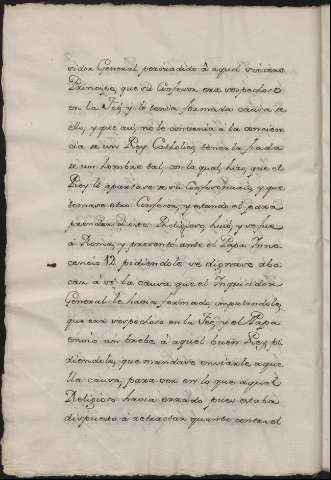 vidor General, persuadido à aquel vintero
Principe, que su Confesor era sospechoso
en la Feé, y le tenia formada causa de
ello, y que asi, no le convenia à la concien
cia de un Rey Catholico tener la suda
de un hombre tal, con lo qual hizo que el
Rey le apartase de su Confesonario, y que
tomase otro Confesor, y estando el para
prender à este Religioso, huió, y se fue
à Roma, y presentó ante el Papa Inno
cencio 12 pidiendole se dignase abo
car à si la causa que el Inquisidor
General le havia formado, imputandole,
que era sospechoso en la Feé, y el Papa
envio un brebe à aquel buen Rey, pi
diendole, que mandase enviarle aque
lla causa, para ver en lo que aquel
Religioso havia errado, pues estaba
dispuesto à retractar quanto contra el